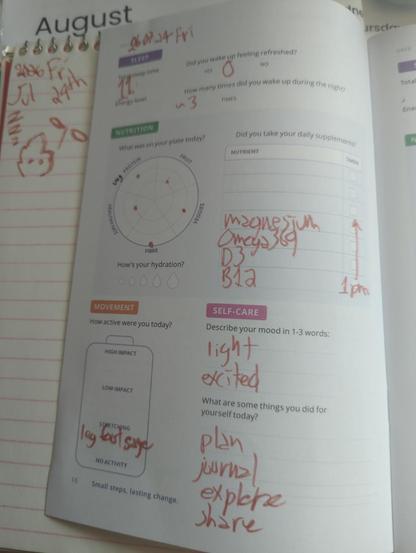 August
2026 Fri
Jul 24th
26 07 24 Fri
SLEEP
Did you wake up feeling refreshed?
Total sleep time
YES
NO
11
How many times did you wake up during the night?
Energy level
~3
TIMES
NUTRITION
What was on your plate today?
PROTEIN
FRUIT
GRAINS
FIBER
VEGETABLES
How's your hydration?
Did you take your daily supplements?
NUTRIENT
magnesium
Omega 369
D3
B12
1pm
MOVEMENT
How active were you today?
HIGH IMPACT
LOW IMPACT
STRETCHING
leg foot
NO ACTIVITY
SELF-CARE
Describe your mood in 1-3 words:
light
excited
What are some things you did for
yourself today?
plan
journal
explore
share
16
Small steps, lasting change.